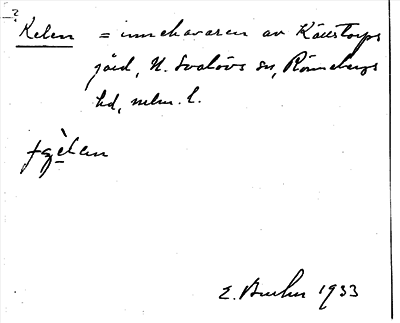 –?
Kelen = innehavaren av Källstorps
gård, N. Svalövs sn, Rönnebergs
hd, mlm. l.
E. 1933